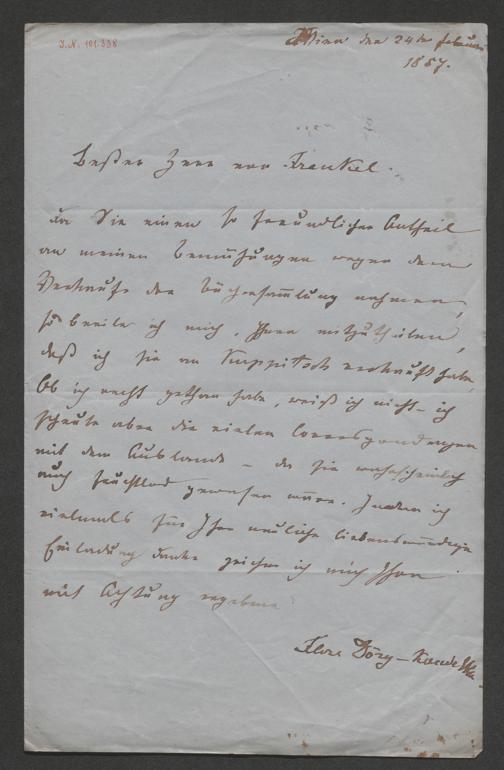 I.N. 101.338
Wien den 24ten Februar
1857.
Bester Herr von Frankel.
Da Sie einen so freundlichen Antheil
an meinen Bemühungen wegen dem
Verkaufe der Büchersammlung nehmen,
so beeile ich mich, Ihnen mitzutheilen,
daß ich sie an Kuppitsch verkauft habe.
Ob ich recht gethan habe, weiß ich nicht – ich
scheute aber die vielen Correspondenzen
mit dem Auslande – da sie wahrscheinlich
auch fruchtlos gewesen wäre. Indem ich
vielmals für Ihre neuliche liebenswürdige
Einladung danke zeichne ich mich Ihnen
mit Achtung ergebene
Flora Döry –